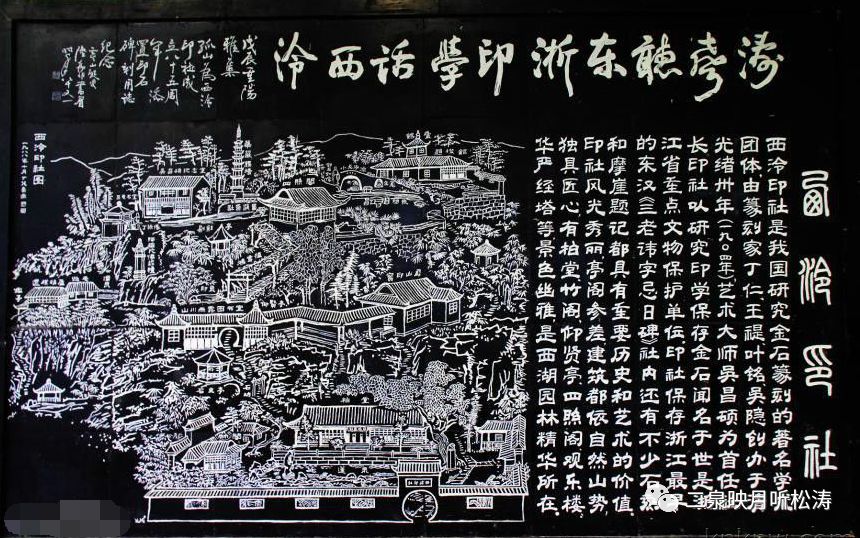 涛声聽东浙印學话西泠
西泠印社
西泠印社是我国研究金石篆刻的著名学
团体由篆刻家丁仁王禔叶铭吴隐创办于
光绪卅年(一九〇四年)艺术大师吴昌硕为首任
长印社以研究印学保存金石闻名于世是
江省重点文物保护单位印社保存浙江最
的东汉《三老讳字忌日碑》社内还有不少石
和摩崖题记都具有重要历史和艺术的价值
印社风光秀丽亭阁参差建筑都依自然山势
独具匠心有柏堂竹阁仰贤亭四照阁观乐楼
华严经塔等景色幽雅是西湖园林精华所在
戊辰重陽
雅集
孤山为西泠
印社成
立八十五周
年添
置印石
碑刻用誌
纪念
西泠印社图
四照閣
山川雨露图书室
柏堂
泉映月听松涛